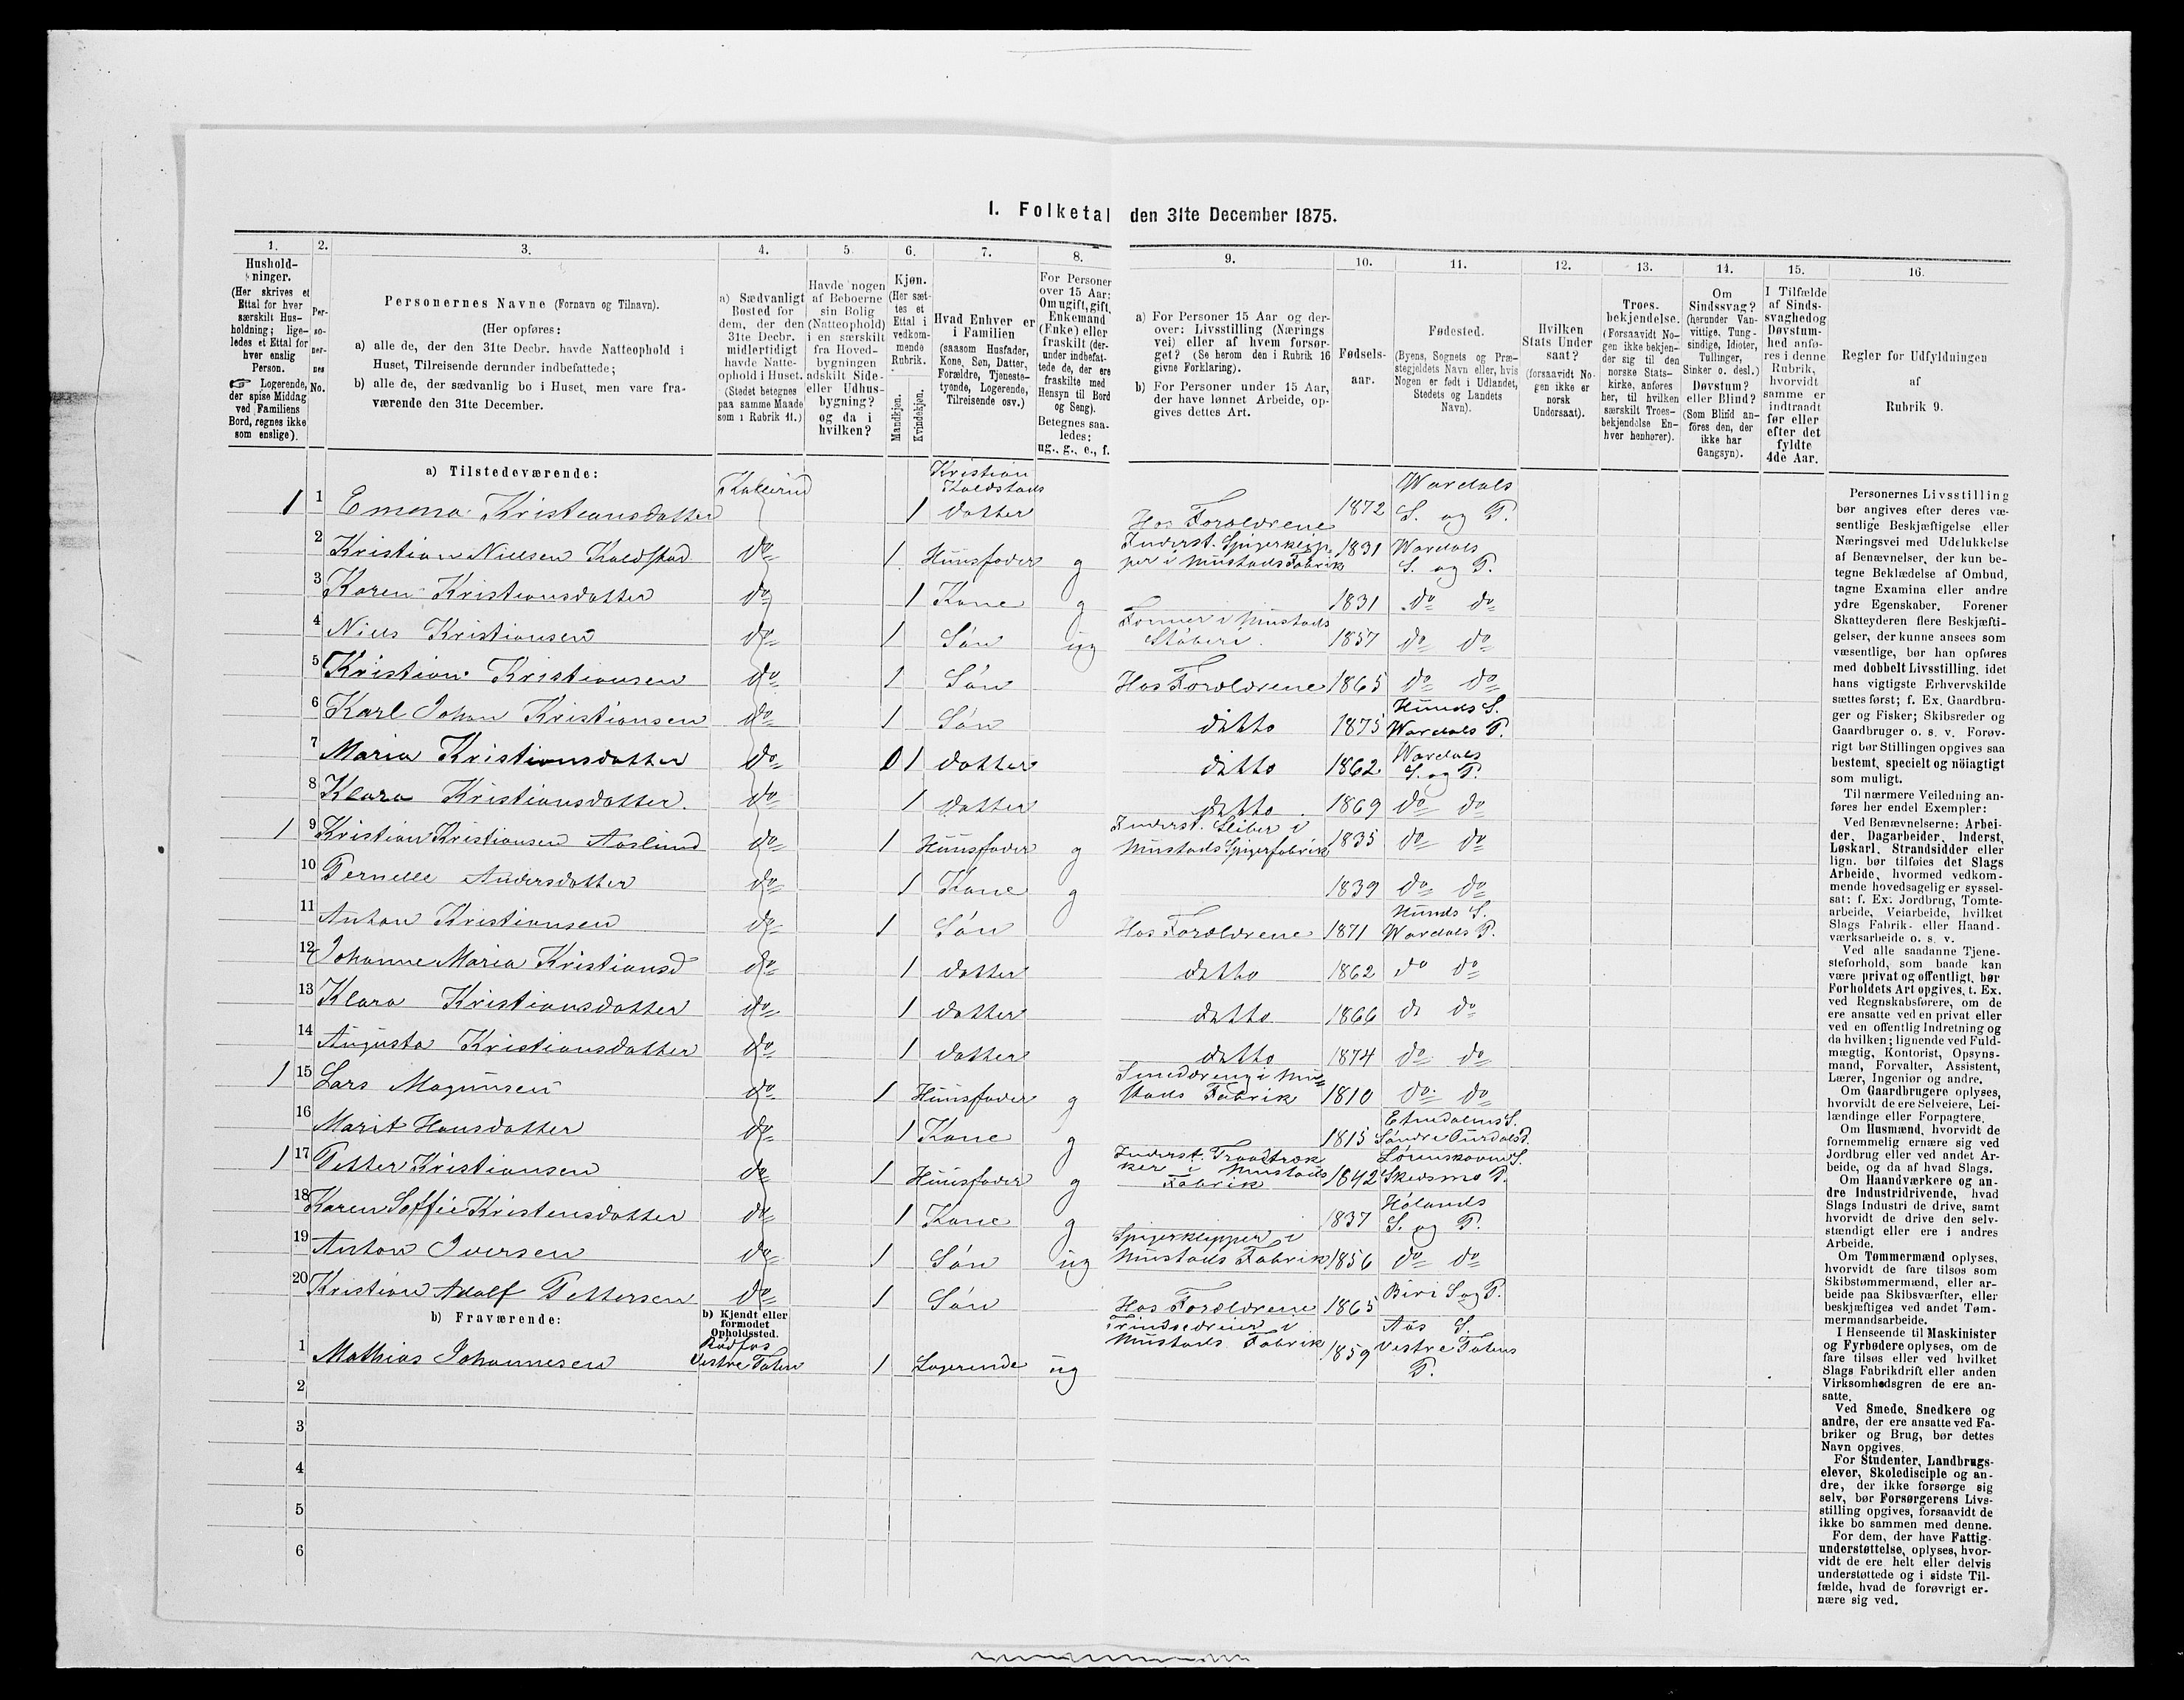 I. Folketal den 31te December 1875.
1. 2. 3. 4. 5 6. 7. 8. 9. 10. 11. 12. 13. 14. 15. 16.
Hushold-
ninger.
(Her skrives et
Ettal for hver
særskilt Hus-
holdning; lige-
ledes et Ettal for
hver enslig
Person.
☞ Logerende,
der spise Middag
ved Familiens
Bord, regnes ikke
som enslige).
Per-
so-
ner-
nes
No.
Personernes Navne (Fornavn og Tilnavn).
(Her opføres:
a) alle de, der den 31te Decbr. havde Natteophold i
Huset, Tilreisende derunder indbefattede;
b) alle de, der sædvanlig bo i Huset, men vare fra-
værende den 31te December.
a) Sædvanligt
Bosted for
dem, der den
31te Decbr.
midlertidigt
havde Natte-
ophold i Huset.
(Stedet betegnes
paa samme Maade
som i Rubrik 11.)
Havde nogen
af Beboerne
sin Bolig
(Natteophold)
i en særskilt
fra Hoved-
bygningen
adskilt Side-
eller Udhus-
bygning?
og da i
hvilken?
Kjøn.
(Her sæt-
tes et
Ettal i
vedkom-
mende
Rubrik.
Mandkjøn.
Kvindekjøn.
Hvad Enhver er
i Familien
(saasom Husfader,
Kone, Søn, Datter,
Forældre, Tjeneste-
tyende, Logerende,
Tilreisende osv.)
For Personer
over 15 Aar:
Om ugift, gift,
Enkemand
(Enke) eller
fraskilt (der-
under indbefat-
tede de, der ere
fraskilte med
Hensyn til Bord
og Seng).
Betegnes saa-
ledes:
ug., g., e., f.
a) For Personer 15 Aar og der-
over: Livsstilling (Nærings
vei) eller af hvem forsør-
get? (Se herom den i Rubrik 16
givne Forklaring).
b) For Personer under 15 Aar,
der have lønnet Arbeide, op-
gives dettes Art.
Fødsels-
aar.
Fødested.
(Byens, Sognets og Præ-
stegjeldets Navn eller, hvis
Nogen er født i Udlandet,
Stedets og Landets
Navn).
Hvilken
Stats Under
saat?
(forsaavidt No-
gen ikke er
norsk
Undersaat).
Troes-
bekjendelse.
(Forsaavidt No-
gen ikke bekjen-
der sig til den
norske Stats-
kirke, anføres
her, til hvilken
særskilt Troes-
bekjendelse En-
hver henhører).
Om
Sindssvag?
(herunder Van-
vittige, Tung-
sindige, Idioter,
Tullinger,
Sinker o. desl.)
Døvstum?
eller Blind?
(Som Blind an-
føres den, der
ikke har
Gangsyn).
I Tilfælde
af Sinds-
svaghed og
Døvstum-
hed anfø-
res i denne
Rubrik,
hvorvidt
samme er
indtraadt
før eller
efter det
fyldte
4de Aar.
Regler for Udfyldningen
af
Rubrik 9.
a) Tilstedeværende:
1 1 Emma Kristiansdatter 1 Kristian Koldstads datter Hos Forældrene 1872 Wardals S. og P.
2 Kristian Nielsen Koldstad do 1 Huusfader g Inderst. Spigerklipper i Mustads Fabrik 1831 Wardals S. og P.
3 Karen Kristiansdatter do 1 Kone g 1831 do do
4 Niels Kristiansen do 1 Søn ug Former i Mustads Støberi. 1857 do do
5 Kristian Kristiansen do 1 Søn Hos Forældrene 1865 do do
6 Karl Johan Kristiansen do 1 Søn ditto 1875 Hunds S. Wardals P.
7 Maria Kristiansdatter do 1 datter ditto 1862 Wardals S. og P.
8 Klara Kristiansdatter. do 1 datter ditto 1869 do do
1 9 Kristian Kristiansen Aaslund do 1 Huusfader g Inderst. Sliber i Mustads Spigerfabrik 1835 do do
10 Pernelle Andersdatter do 1 Kone g 1839 do do
11 Anton Kristiansen do 1 Søn Hos Forældrene 1871 Hunds S. Wardals P.
12 Johanne Maria Kristiansd do 1 datter ditto 1862 do do
13 Klara Kristiansdatter do 1 datter ditto 1866 do do
14 Augusta Kristiansdatter do 1 datter ditto 1874 do do
1 15 Lars Magnusen do 1 Huusfader g Smeddreng i Mustads Fabrik 1810 do do
16 Marit Hansdatter do 1 Kone g 1815 Etnedalens S. Søndre Aurdals P.
1 17 Petter Kristiansen do 1 Huusfader g Inderst. Traadtrækker i Mustads Fabrik 1842 Lørenskovens S. Skedsmo P.
18 Karen Soffie Kristensdatter do 1 Kone g 1837 Hølands S. og P.
19 Anton Iversen do 1 Søn ug Spigerklipper i Mustads Fabrik 1856 do do
20 Kristian Adolf Pettersen do 1 Søn Hos Forældrene 1865 Biri S og P.
b) Fraværende:
b) Kjendt eller
formodet
Opholdssted.
1 Mathias Johannesen Vestre Toten 1 Logerende ug i Mustads Fabrik 1859 Aas S. Vestre Totens P.
2
3
4
5
6
Personernes Livsstilling
bør angives efter deres væ-
sentlige Beskjæftigelse eller
Næringsvei med Udelukkelse
af Benævnelser, der kun be-
tegne Beklædelse af Ombud,
tagne Examina eller andre
ydre Egenskaber. Forener
Skatteyderen flere Beskjæfti-
gelser, der kunne ansees som
væsentlige, bør han opføres
med dobbelt Livsstilling, idet
hans vigtigste Erhvervskilde
sættes først; f. Ex. Gaardbru-
ger og Fisker; Skibsreder og
Gaardbruger o. s. v. Forøv-
rigt bør Stillingen opgives saa
bestemt, specielt og nöiagtigt
som muligt.
Til nærmere Veiledning an-
føres her endel Exempler:
Ved Benævnelserne: Arbei-
der, Dagarbeider, Inderst,
Løskarl, Strandsidder eller
lign. bør tilføies det Slags
Arbeide, hvormed vedkom-
mende hovedsagelig er syssel-
sat; f. Ex. Jordbrug, Tomte-
arbeide, Veiarbeide, hvilket
Slags Fabrik- eller Haand-
værksarbeide o. s. v.
Ved alle saadanne Tjene-
steforhold, som baade kan
være privat og øffentligt, bør
Forholdets Art opgives, t. Ex.
ved Regnskabsførere, om de
ere ansatte ved en privat eller
ved en offentlig Indretning og
da hvilken; lignende ved Fuld-
mægtig, Kontorist, Opsyns-
mand, Forvalter, Assistent,
Lærer, Ingeniør og andre.
Om Gaardbrugere oplyses,
hvorvidt de ere Selveiere, Lei-
lændinge eller Forpagtere.
Om Husmænd, hvorvidt de
fornemmelig ernære sig ved
Jordbrug eller ved andet Ar-
beide, og da af hvad Slags.
Om Haandværkere og an-
dre Industridrivende, hvad
Slags Industri de drive, samt
hvorvidt de drive den selv-
stændigt eller ere i andres
Arbeide.
Om Tømmermænd oplyses,
hvorvidt de fare tilsøs som
Skibstømmermænd, eller ar-
beide paa Skibsværfter, eller
beskjæftiges ved andet Tøm-
mermandsarbeide.
I Henseende til Maskinister
og Fyrbødere oplyses, om de
fare tilsøs eller ved hvilket
Slags Fabrikdrift eller anden
Virksomhedsgren de ere an-
satte.
Ved Smede, Snedkere og
andre, der ere ansatte ved Fa-
briker og Brug, bør dettes
Navn opgives.
For Studenter, Landbrugs-
elever, Skoledisciple og an-
dre, der ikke forsørge sig
selv, bør Forsørgerens Livs-
stilling opgives, forsaavidt de
ikke bo sammen med denne.
For dem, der have Fattig-
understøttelse, oplyses, hvor-
vidt de ere helt eller delvis
understøttede og i sidste Til-
fælde, hvad de forøvrigt er-
nære sig ved.